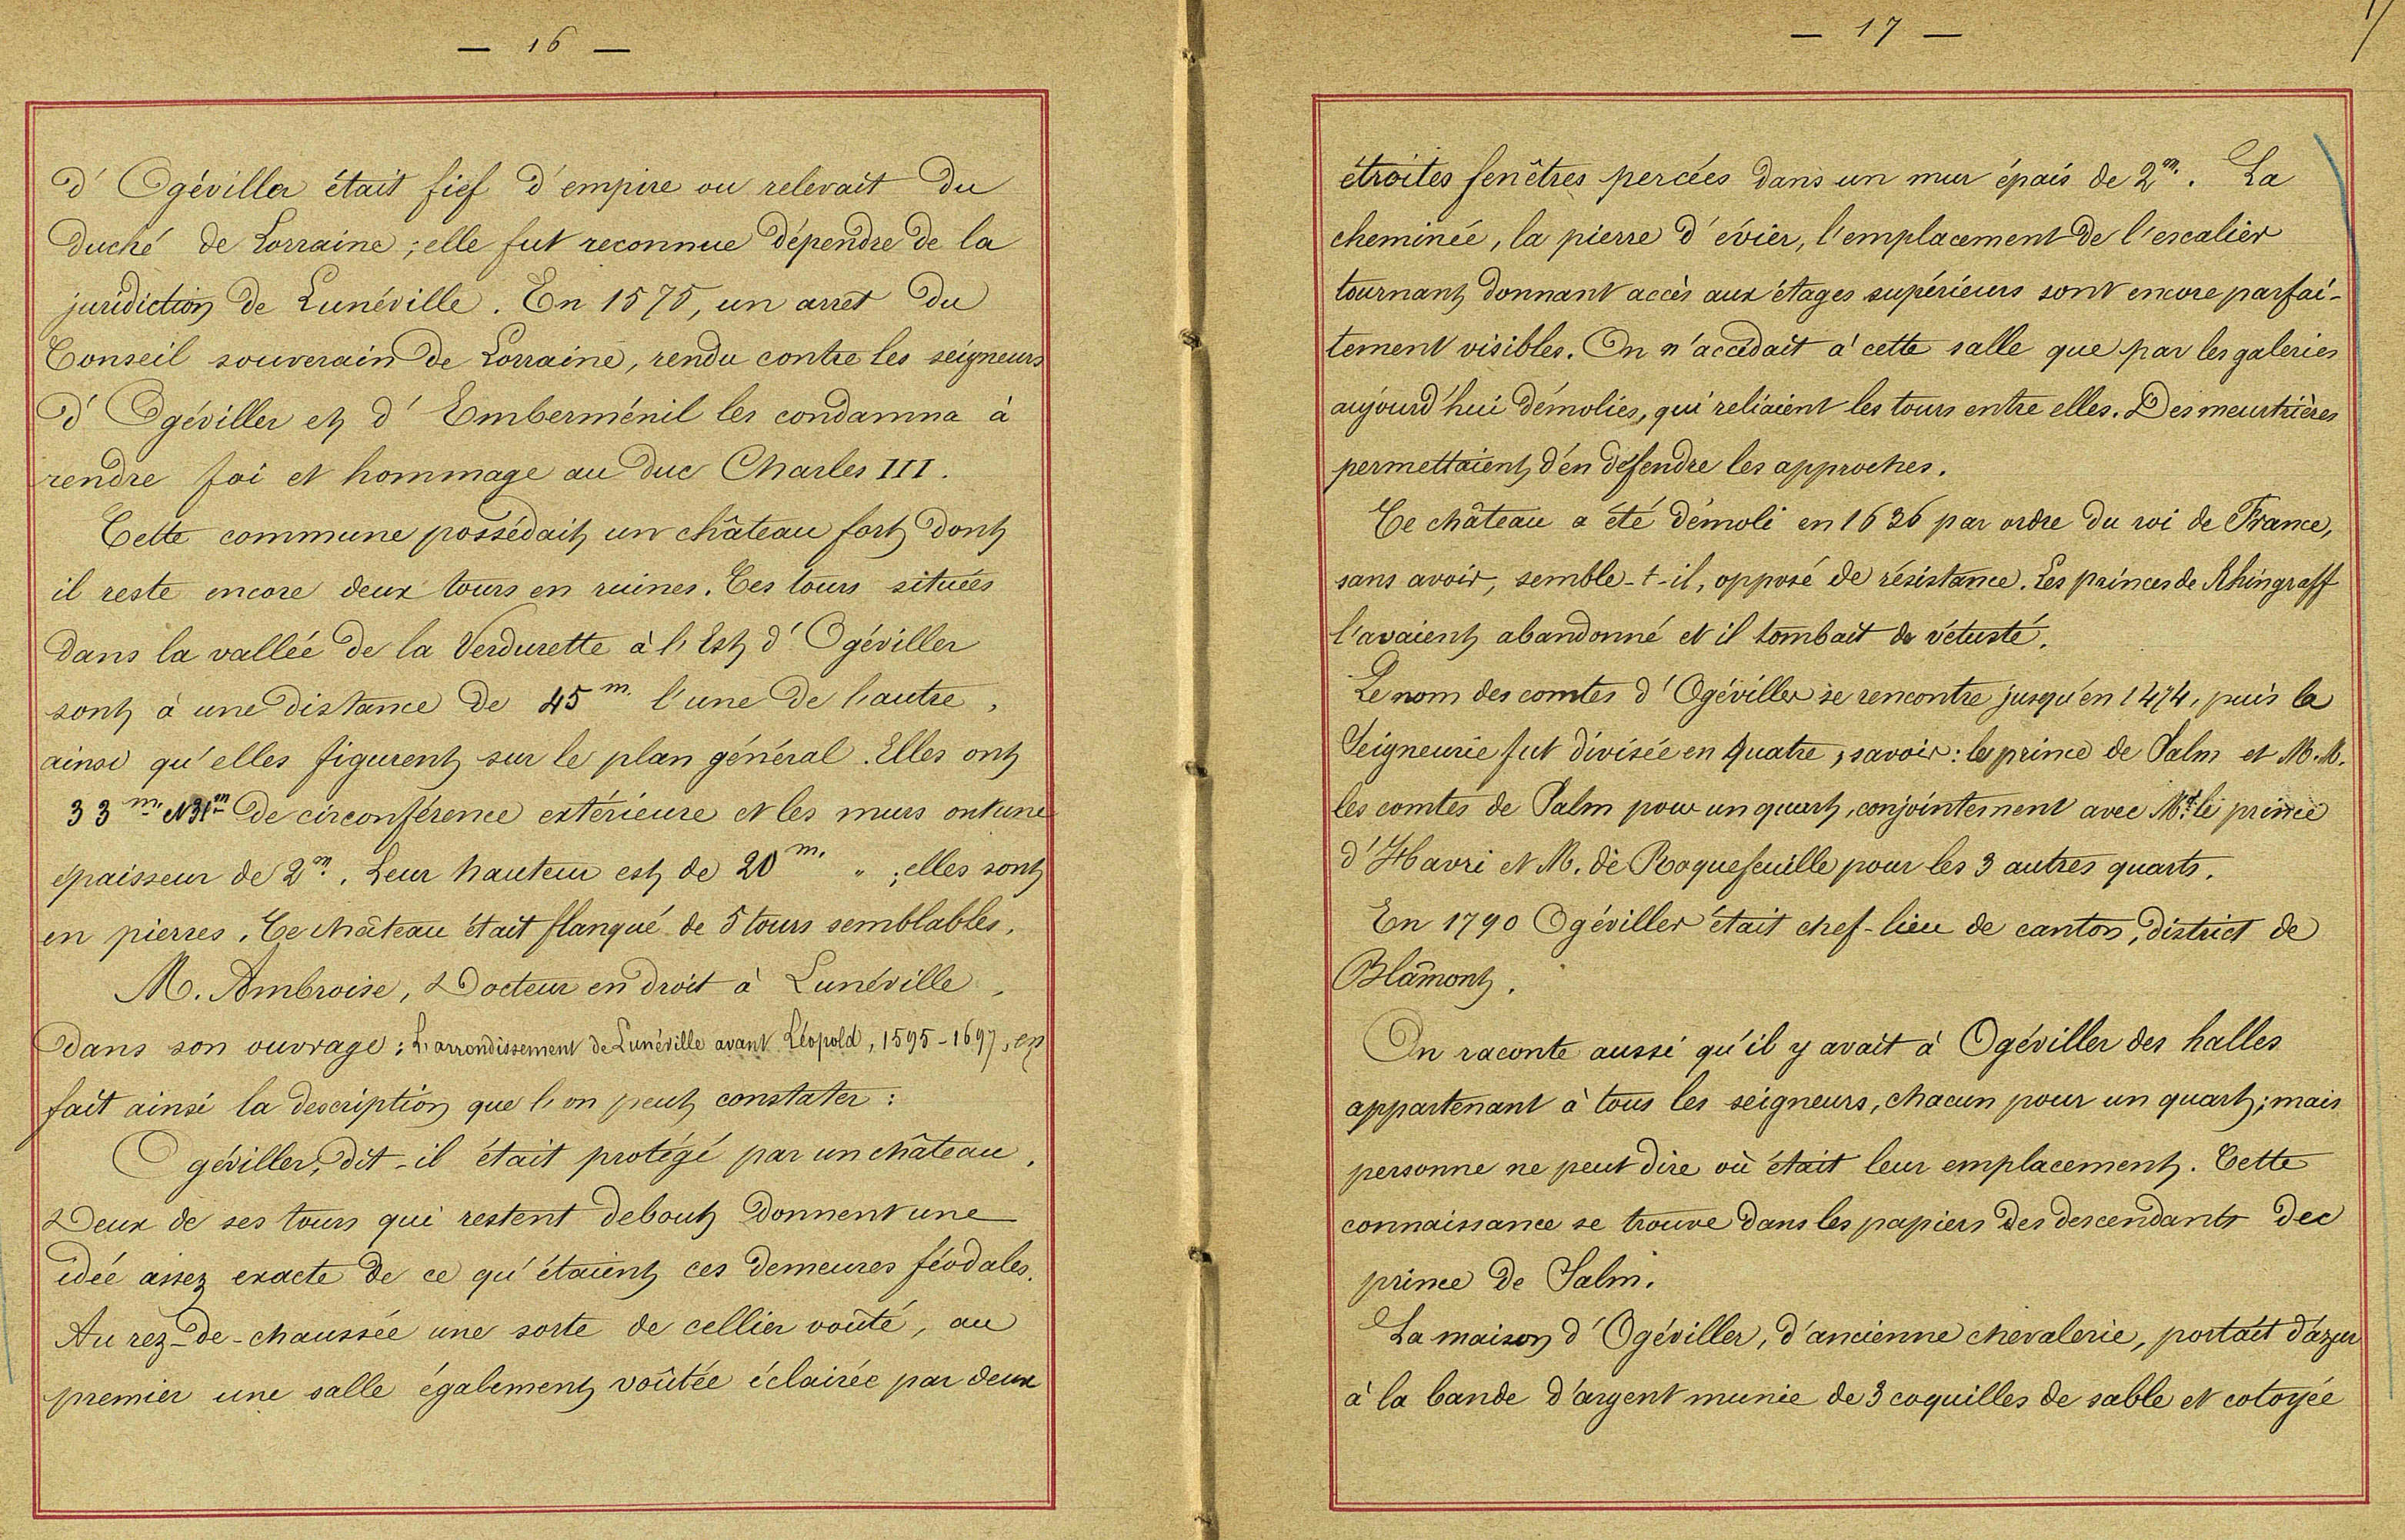 — 16 —
d'Ogéviller était fief d'empire ou relevait du
duché de Lorraine ; elle fut reconnue dépendre de la
juridiction de Lunéville. En 1575, un arret du
Conseil souverain de Lorraine, rendu contre les seigneurs
d'Ogéviller et d'Emberménil les condamna à
rendre foi et hommage au duc Charles III.
Cette commune possédait un château fort dont
il reste encore deux tours en ruines. Ces tours situées
dans la vallée de la Verdurette à l'Est d'Ogéviller
sont à une distance de 45 m. l'une de l'autre,
ainsi qu'elles figurent sur le plan général. Elles ont
33 m. et 31 m de circonférence extérieure et les murs ont une
épaisseur de 2 m. Leur hauteur est de 20 m. " ; elles sont
en pierres. Ce château était flanqué de 5 tours semblables.
M. Ambroise, Docteur en droit à Lunéville,
dans son ouvrage : L'arrondissement de Lunéville avant Léopold, 1595-1697, en
fait ainsi la description que l'on peut constater :
Ogéviller, dit-il était protégé par un château.
Deux de ses tours qui restent debout donnent une
idée assez exacte de ce qu'étaient ces demeures féodales.
Au rez-de-chaussée une sorte de cellier voûté, au
premier une salle également voûtée éclairée par deux
— 17 —
étroites fenêtres percées dans un mur épais de 2 m. La
cheminée, la pierre d'évier, l'emplacement de l'escalier
tournant donnant accès aux étages supérieurs sont encore parfai-
tement visibles. On n'accédait à cette salle que par les galeries
aujourd'hui démolies, qui reliaient les tours entre elles. Des meurtrières
permettaient d'en défendre les approches.
Ce château a été démoli en 1636 par ordre du roi de France,
sans avoir, semble-t-il, opposé de résistance. Les princes de Rhingraff
l'avaient abandonné et il tombait de vétusté.
Le nom des comtes d'Ogéviller se rencontre jusqu'en 1474, puis la
Seigneurie fut divisée en quatre, savoir : le prince de Salm et M.M.
les comtes de Salm pour un quart, conjointement avec Mr. le prince
d'Havri et M. de Roquefeuille pour les 3 autres quarts.
En 1790 Ogéviller était chef-lieu de canton, district de
Blâmont.
On raconte aussi qu'il y avait à Ogéviller des halles
appartenant à tous les seigneurs, chacun pour un quart ; mais
personne ne peut dire où était leur emplacement. Cette
connaissance se trouve dans les papiers des descendants dec
prince de Salm.
La maison d'Ogéviller, d'ancienne chevalerie, portait d'azur
à la bande d'argent munie de 3 coquilles de sable et cotoyée